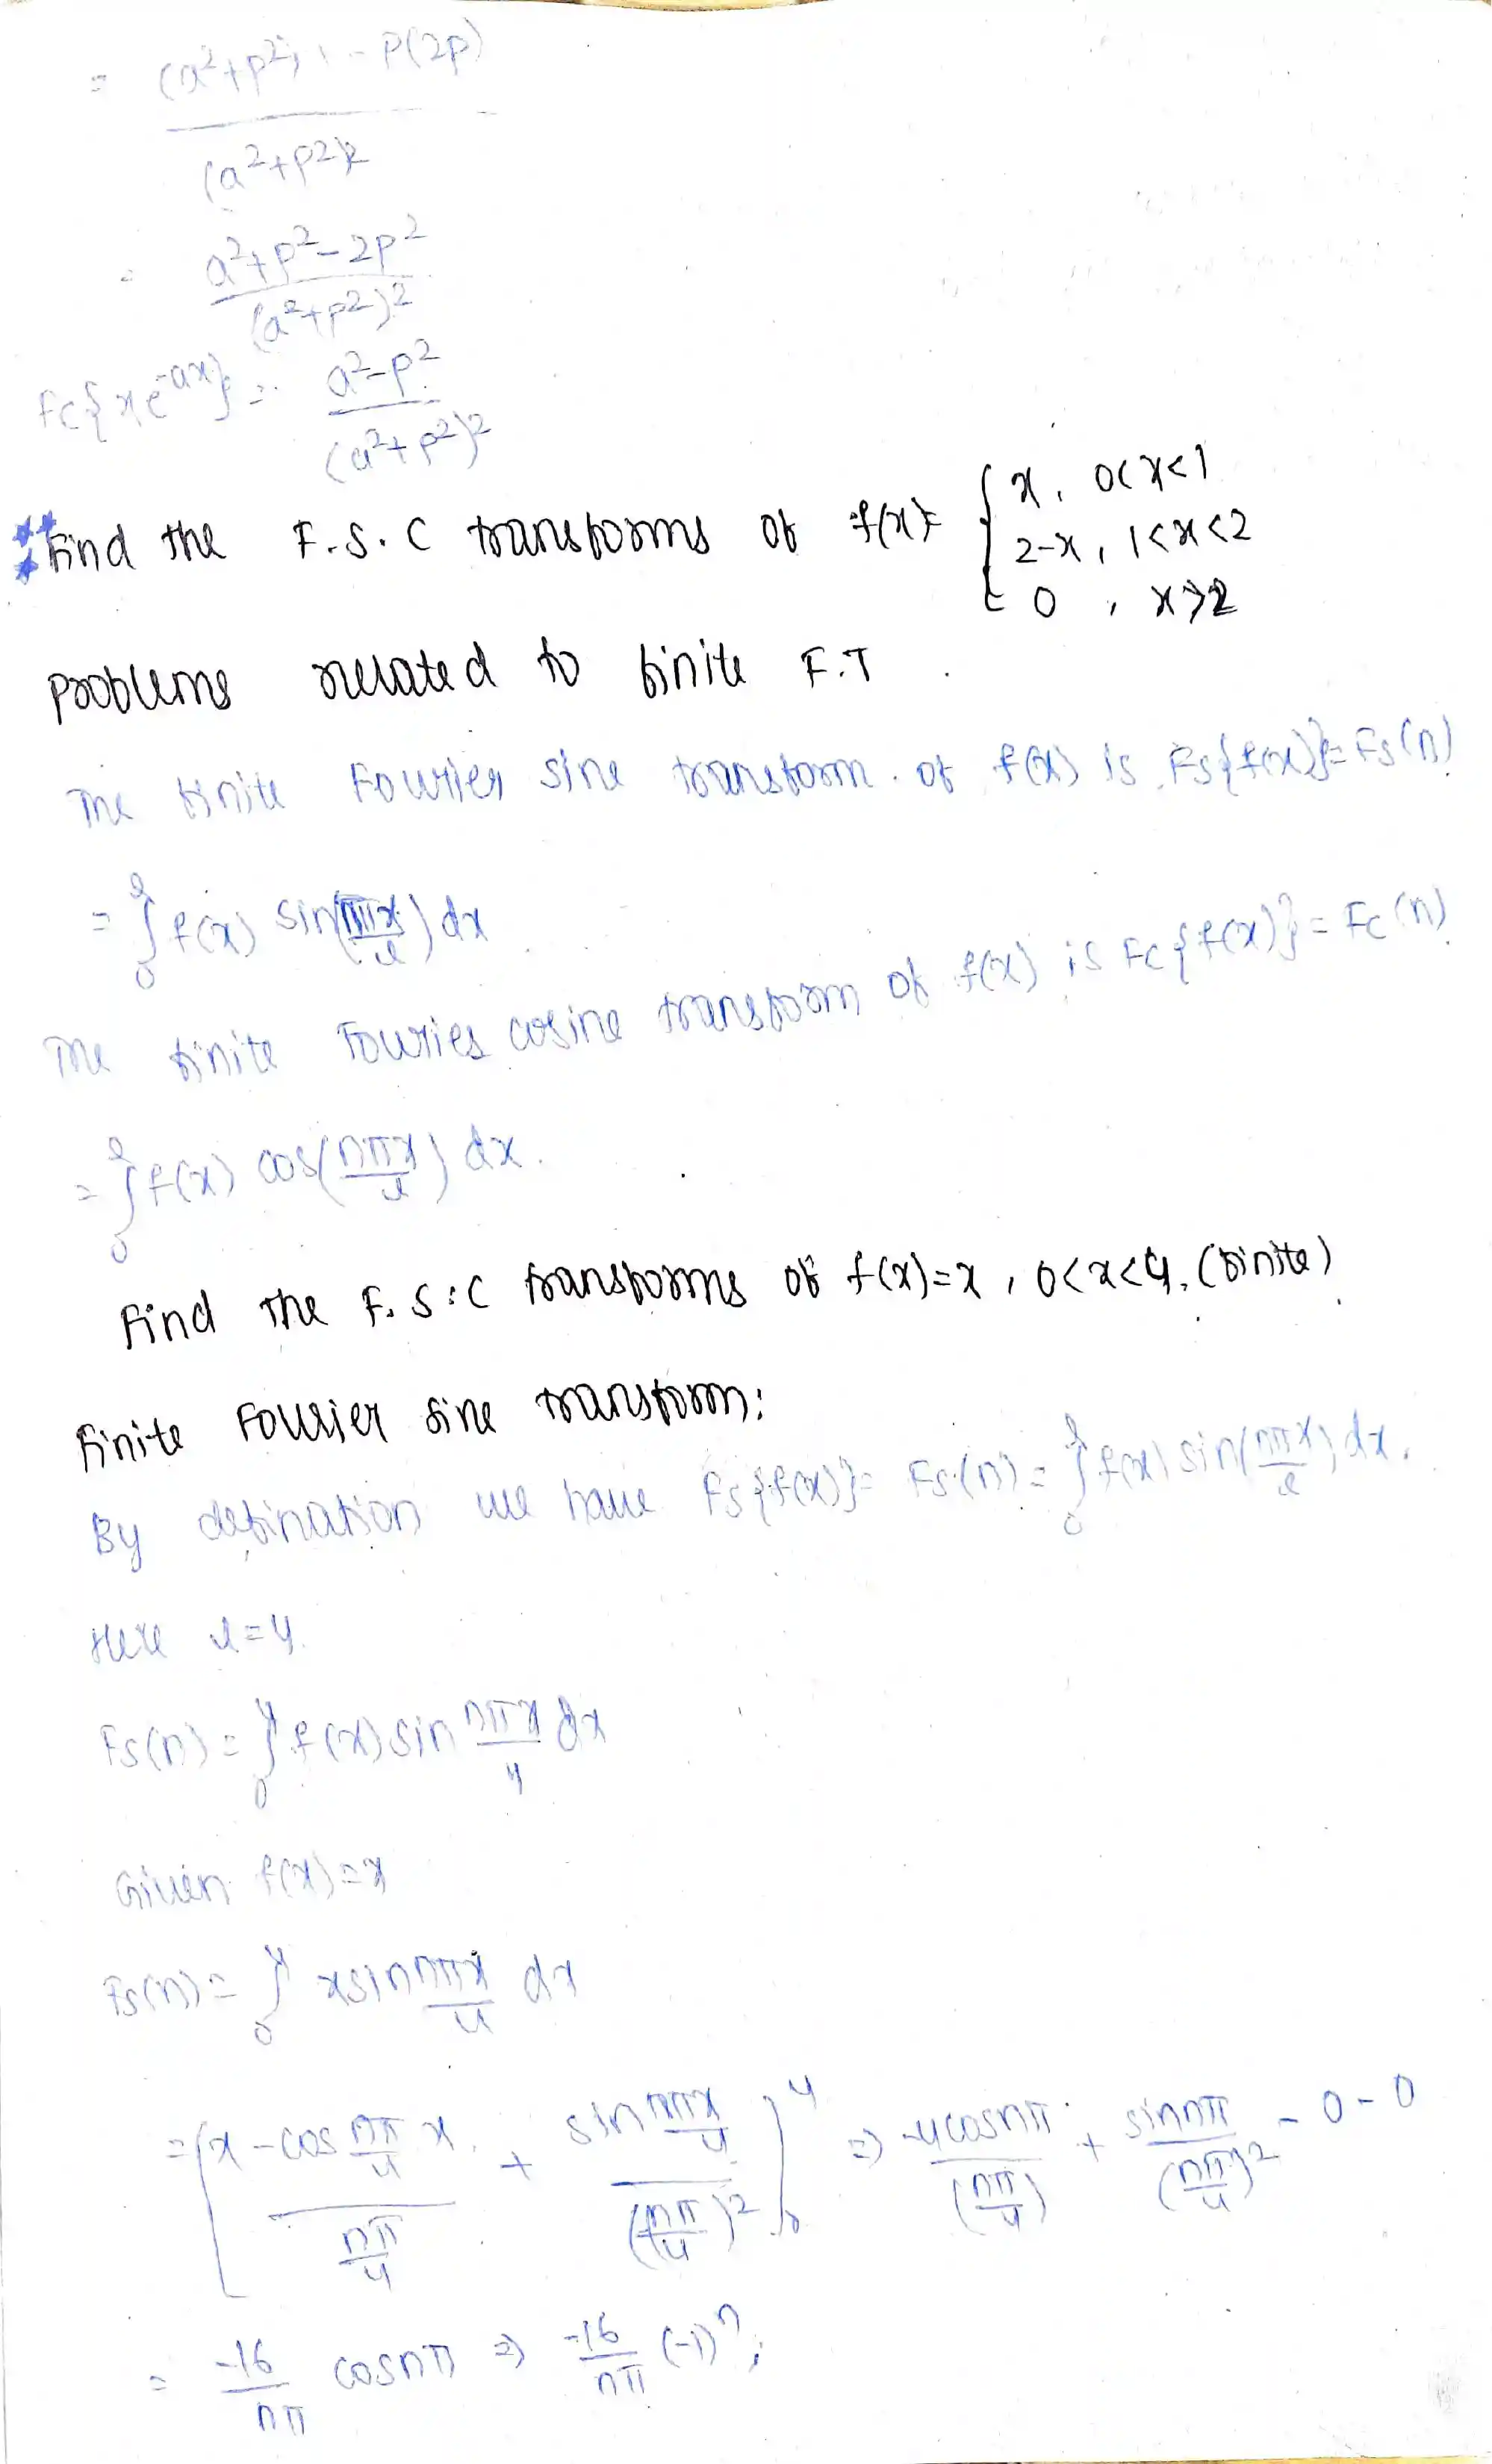 = (a²+p²)1 - p(2p) / (a²+p²)²
= a²+p²-2p² / (a²+p²)²
Fc{xe^-ax} = a²-p² / (a²+p²)²
Find the F.S.C transforms of f(x)= { x, 0<x<1
2-x, 1<x<2
0, x>2
problems related to finite F.T
The finite Fourier sine transform of f(x) is Fs{f(x)}=Fs(n)
= ∫₀^l f(x) sin(nπx/l) dx
The finite Fourier cosine transform of f(x) is Fc{f(x)}=Fc(n)
= ∫₀^l f(x) cos(nπx/l) dx.
Find the F.S.C transforms of f(x)=x, 0<x<4. (finite)
Finite Fourier sine transform:
By defination we have Fs{f(x)}= Fs(n)= ∫₀^l f(x) sin(nπx/l) dx.
Here l=4
Fs(n)= ∫₀⁴ f(x) sin nπx/4 dx
Given f(x)=x
Fs(n)= ∫₀⁴ x sin nπx/4 dx
= [x -cos nπ/4 x / nπ/4 + sin nπx/4 / (nπ/4)²]₀⁴ ⇒ -4cosnπ / (nπ/4) + sinnπ / (nπ/4)² - 0-0
= -16/nπ cosnπ ⇒ -16/nπ (-1)ⁿ;